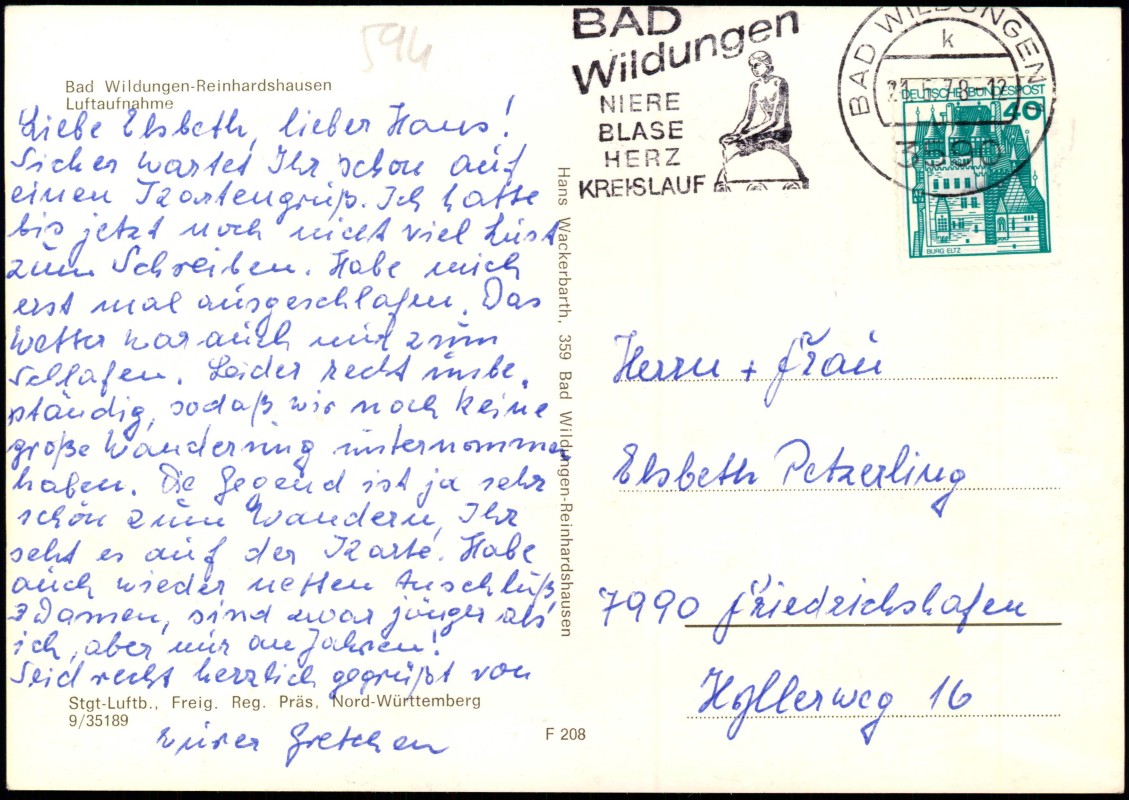 594
Bad Wildungen-Reinhardshausen
Luftaufnahme
Liebe Elsbeth, lieber Hans!
Sicher wartet Ihr schon auf
einen Kartengruß. Ich hatte
bis jetzt noch nicht viel Lust
zum Schreiben. Habe mich
erst mal ausgeschlafen. Das
Wetter war auch nur zum
Schlafen. Leider recht unbe,
ständig, sodaß wir noch keine
große Wanderung unternommen
haben. Die Gegend ist ja sehr
schön zum Wandern, Ihr
seht es auf der Karte. Habe
auch wieder netten Anschluß
Damen, sind zwar jünger als
ich, aber nur an Jahren!
Seid recht herzlich gegrüßt von
Stgt-Luftb., Freig. Reg. Präs, Nord-Württemberg
9/35189
Eurer Gretchen
F 208
Hans Wackerbarth, 359 Bad Wildungen-Reinhardshausen
BAD
Wildungen
NIERE
BLASE
HERZ
KREISLAUF
BAD WILDUNGEN
k
78-12
3590
DEUTSCHE BUNDESPOST
40
BURG ELTZ
Herrn + Frau
Elsbeth Petzerling
7990 Friedrichshafen
Hyllerweg 16